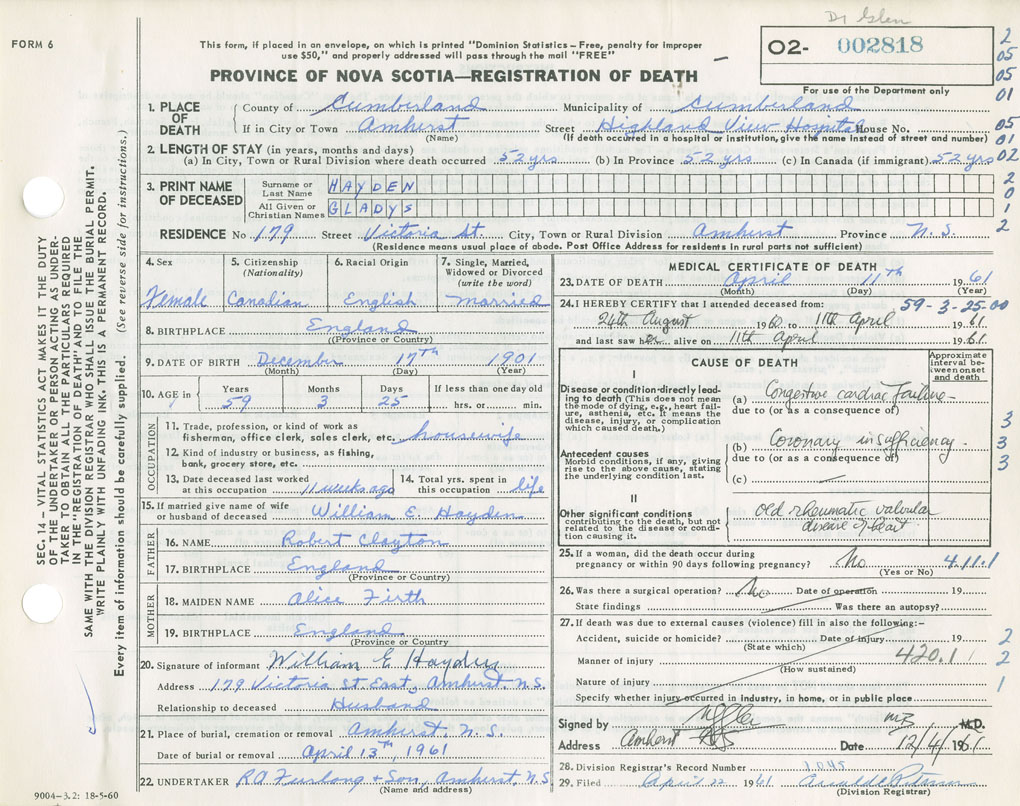 Dr Glen
FORM 6
This form, if placed in an envelope, on which is printed "Dominion Statistics – Free, penalty for improper
use $50," and properly addressed will pass through the mail "FREE"
O2- 002818
For use of the Department only
PROVINCE OF NOVA SCOTIA—REGISTRATION OF DEATH
2
05
05
01
05
01
02
2
0
1
2
1. PLACE OF DEATH
County of Cumberland Municipality of Cumberland
If in City or Town Amherst Street Highland View Hospital House No.
(Name) (If death occurred in a hospital or institution, give its name instead of street and number)
2. LENGTH OF STAY (in years, months and days)
(a) In City, Town or Rural Division where death occurred 52 yrs (b) In Province 52 yrs (c) In Canada (if immigrant) 52 yrs
3. PRINT NAME OF DECEASED
Surname or Last Name HAYDEN
All Given or Christian Names GLADYS
RESIDENCE No 179 Street Victoria St. City, Town or Rural Division Amherst Province N.S.
(Residence means usual place of abode. Post Office Address for residents in rural parts not sufficient)
4. Sex
Female
5. Citizenship
(Nationality)
Canadian
6. Racial Origin
English
7. Single, Married,
Widowed or Divorced
(write the word)
Married
8. BIRTHPLACE England
(Province or Country)
9. DATE OF BIRTH December 17th 1901
(Month) (Day) (Year)
10. AGE in
Years Months Days If less than one day old
59 3 25 hrs. or min.
OCCUPATION
11. Trade, profession, or kind of work as
fisherman, office clerk, sales clerk, etc. housewife
12. Kind of industry or business, as fishing,
bank, grocery store, etc.
13. Date deceased last worked
at this occupation 11 weeks ago
14. Total yrs. spent in
this occupation life
15. If married give name of wife
or husband of deceased William E. Hayden
FATHER
16. NAME Robert Clayton
17. BIRTHPLACE England
(Province or Country)
MOTHER
18. MAIDEN NAME Alice Firth
19. BIRTHPLACE England
(Province or Country)
20. Signature of informant William E Hayden
Address 179 Victoria St East, Amherst, N.S.
Relationship to deceased Husband
21. Place of burial, cremation or removal Amherst, N.S.
Date of burial or removal April 13th, 1961
22. UNDERTAKER R.A. Furlong & Son, Amherst, N.S
(Name and address)
MEDICAL CERTIFICATE OF DEATH
23. DATE OF DEATH April 11th 1961
(Month) (Day) (Year)
24. I HEREBY CERTIFY that I attended deceased from: 59-3-25-00
24th August 1960 to 11th April 1961
and last saw her alive on 11th April 1961
CAUSE OF DEATH
Approximate
interval be-
tween onset
and death
I
Disease or condition directly lead-
ing to death (This does not mean
the mode of dying, e.g., heart fail-
ure, asthenia, etc. It means the
disease, injury, or complication
which caused death.)
(a) Congestive cardiac Failure
due to (or as a consequence of)
Antecedent causes
Morbid conditions, if any, giving
rise to the above cause, stating
the underlying condition last.
(b) Coronary insufficiency
due to (or as a consequence of)
(c)
II
Other significant conditions
contributing to the death, but not
related to the disease or condi-
tion causing it.
Old rheumatic valvular
disease of heart
3
3
3
25. If a woman, did the death occur during
pregnancy or within 90 days following pregnancy? No 4.11.1
(Yes or No)
26. Was there a surgical operation? No Date of operation 19
State findings Was there an autopsy?
27. If death was due to external causes (violence) fill in also the following:-
Accident, suicide or homicide? Date of injury 19
(State which)
Manner of injury 420.1
(How sustained)
Nature of injury
Specify whether injury occurred in industry, in home, or in public place
2
2
1
Signed by M.D.
Address Amherst Date 12/4/1961
28. Division Registrar's Record Number
29. Filed April 22 1961
(Division Registrar)
SEC. 14 – VITAL STATISTICS ACT MAKES IT THE DUTY
OF THE UNDERTAKER OR PERSON ACTING AS UNDER-
TAKER TO OBTAIN ALL THE PARTICULARS REQUIRED
IN THE "REGISTRATION OF DEATH" AND TO FILE THE
SAME WITH THE DIVISION REGISTRAR WHO SHALL ISSUE THE BURIAL PERMIT.
WRITE PLAINLY WITH UNFADING INK. THIS IS A PERMANENT RECORD.
Every item of information should be carefully supplied. (See reverse side for instructions.)
9004-3.2: 18-5-60